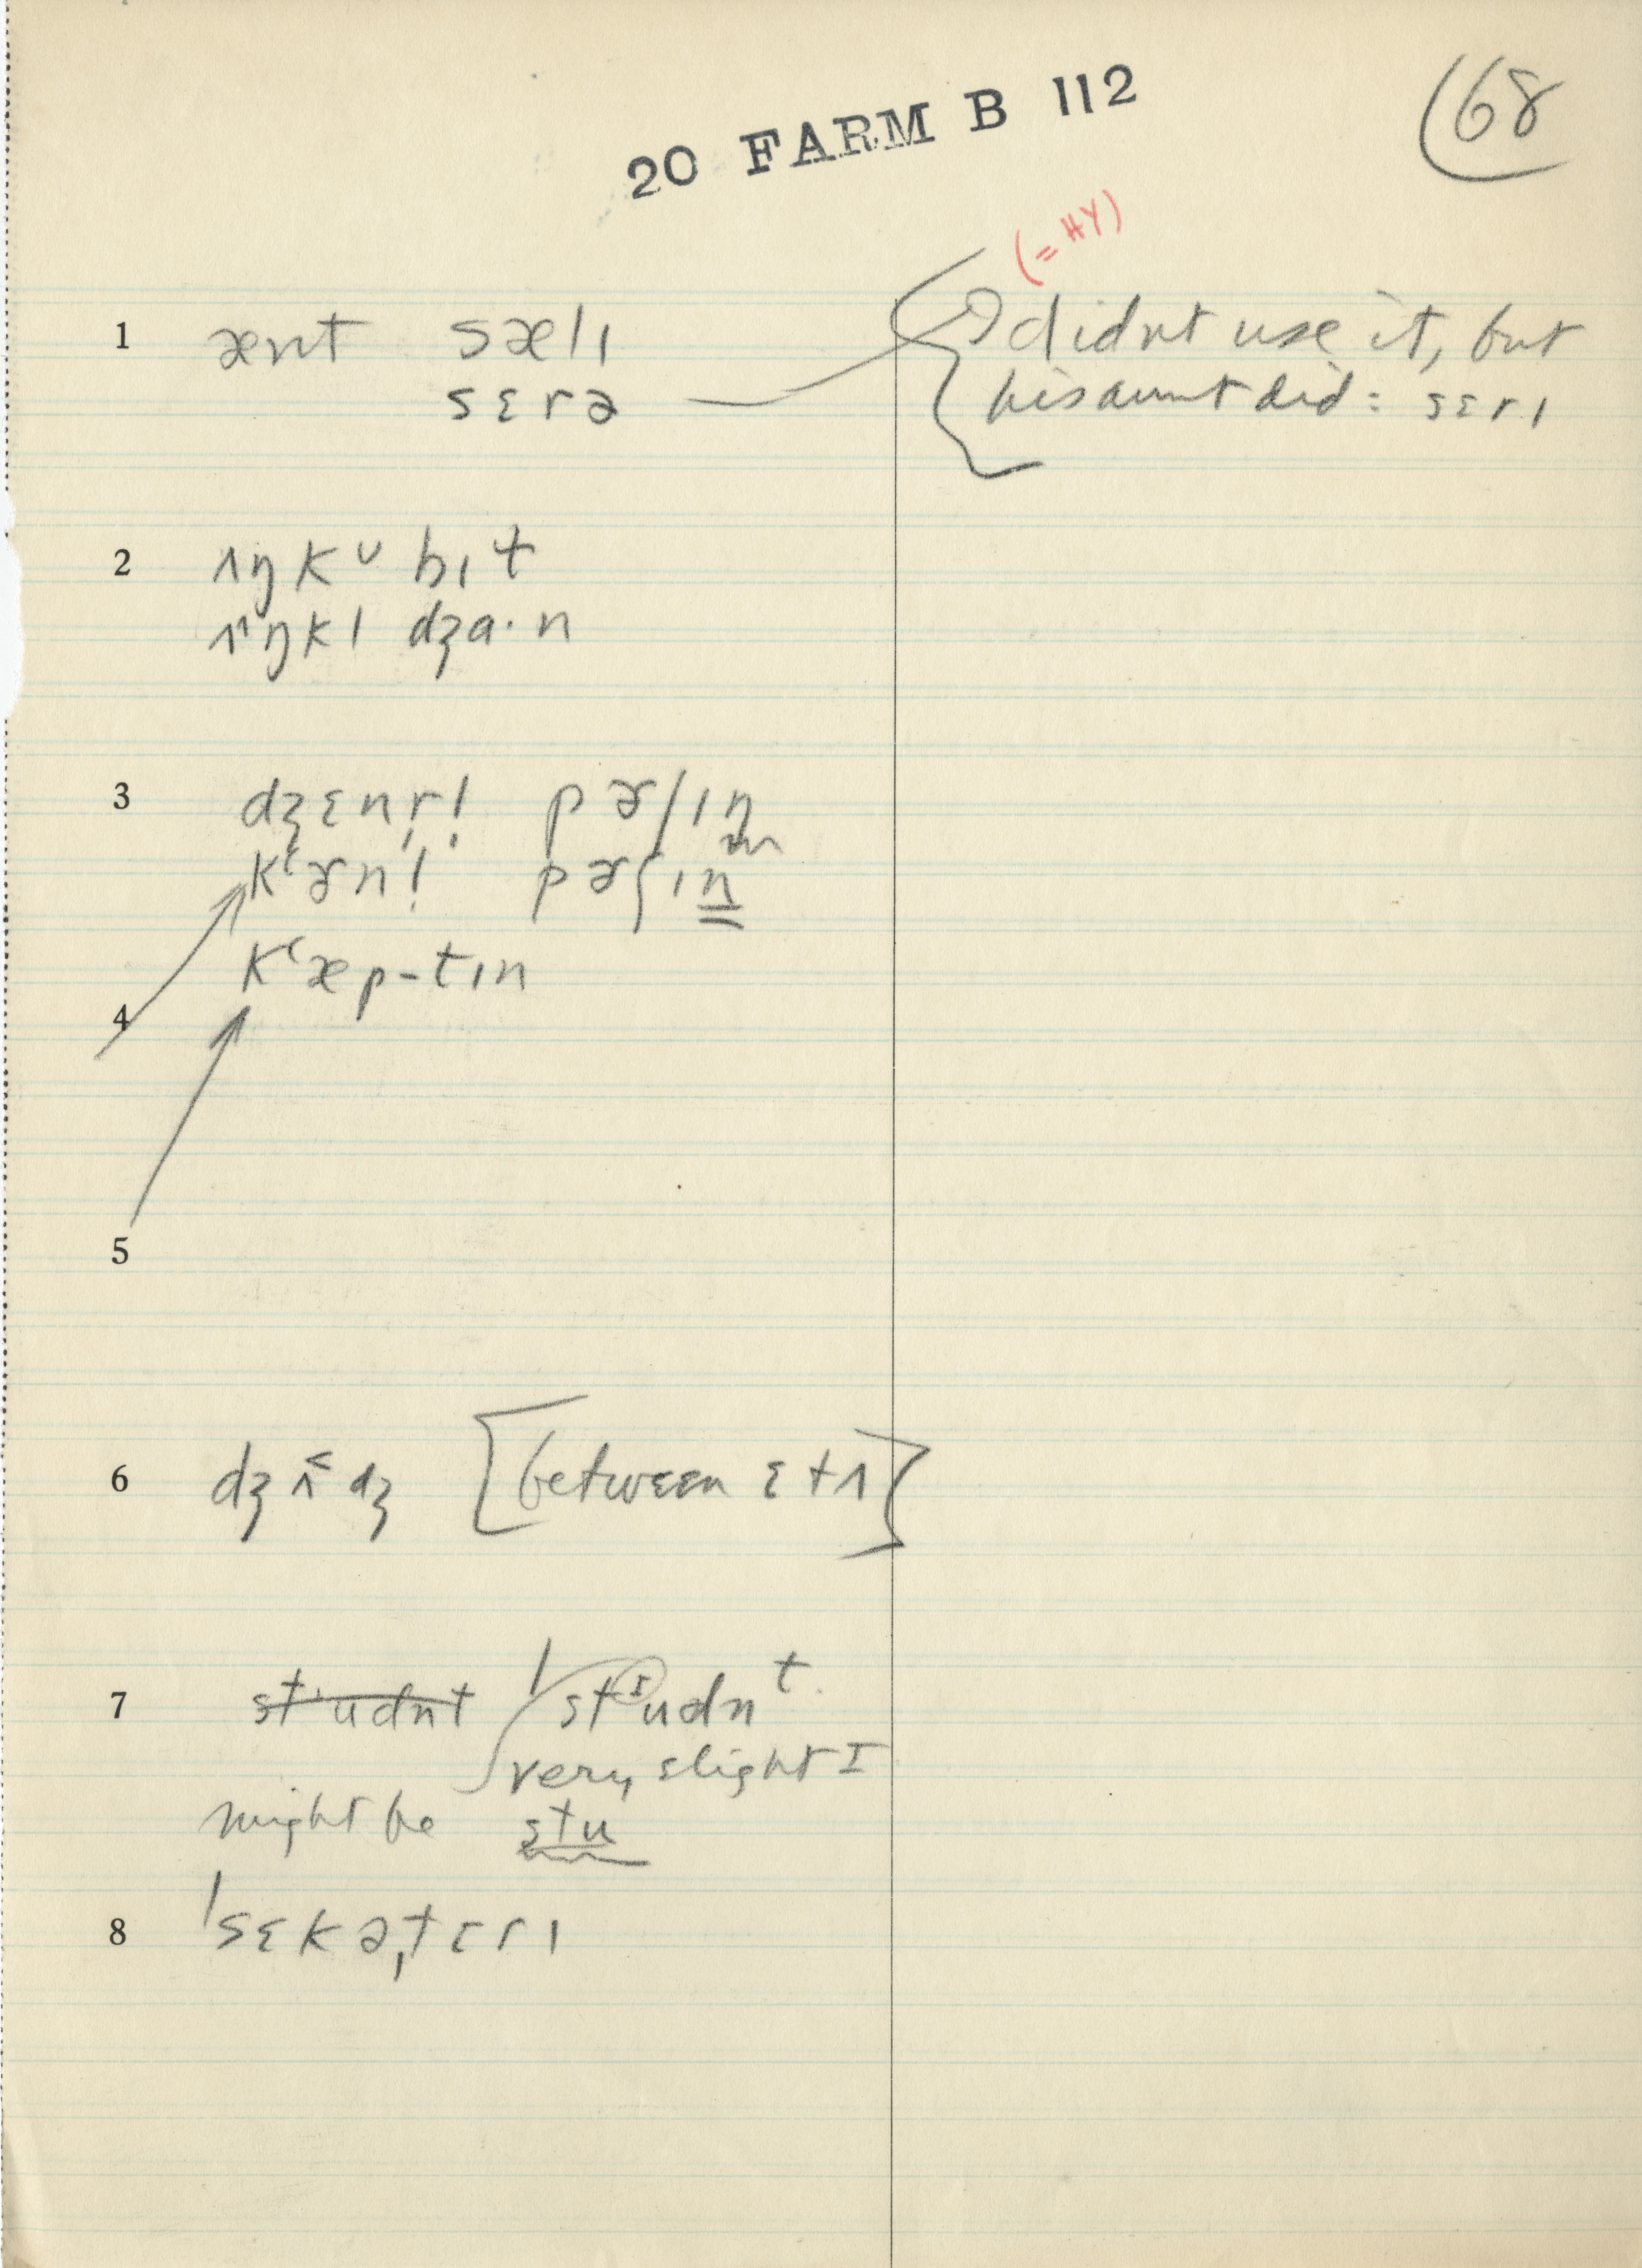 20 FARM B 112
68
(= HY)
1 ænt sælɪ didnt use it, but
sɛrə his aunt did: sɛrɪ
2 ʌŋkʊ bɪt
ʌŋkl dʒɑ·n
3 dʒɛnr̩l̩ pɚʃɪŋ
kʻɚnl̩ pɚʃɪn
kʻæp-tɪn
4
5
6 dʒʌ̌dʒ [between ɛ + ʌ]
7 studnt ˈstɪudnt
very slight I
might be stu
8 ˈsɛkəˌtɛrɪ